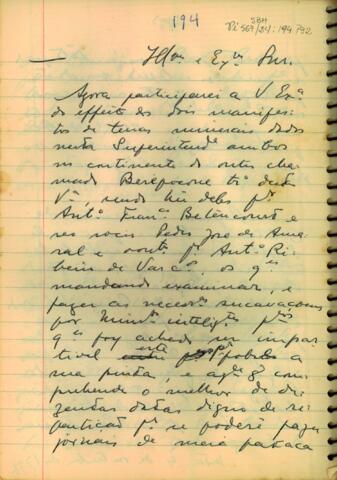 194
SBH
Pi 569/84: 194 P92
Illmo. e Exmo. Snr.
Agora participarei a V Exª.
do effeito dos dois manifes-
tos de terras mineraes dados
nesta Superintendª ambos
no continente do outro cha-
mado Berepocone tª desta
Vª, sendo hũ delles pr
Antº. Franº. Betencourt e
seo socio Pedro José de Ama-
ral e outrº. pr Antº. Ri-
beiro de Vascºs., os qes
mandando examinar, e
fazer as necessrs. sucavacoens
por Minrºs. inteligtes
q foy achado um impar-
tivel pobre a
sua pinta, e
prehende o melhor de du-
zendas dadas digno de re-
partiçaõ pr se poderê fazer
jornais de meia pataca